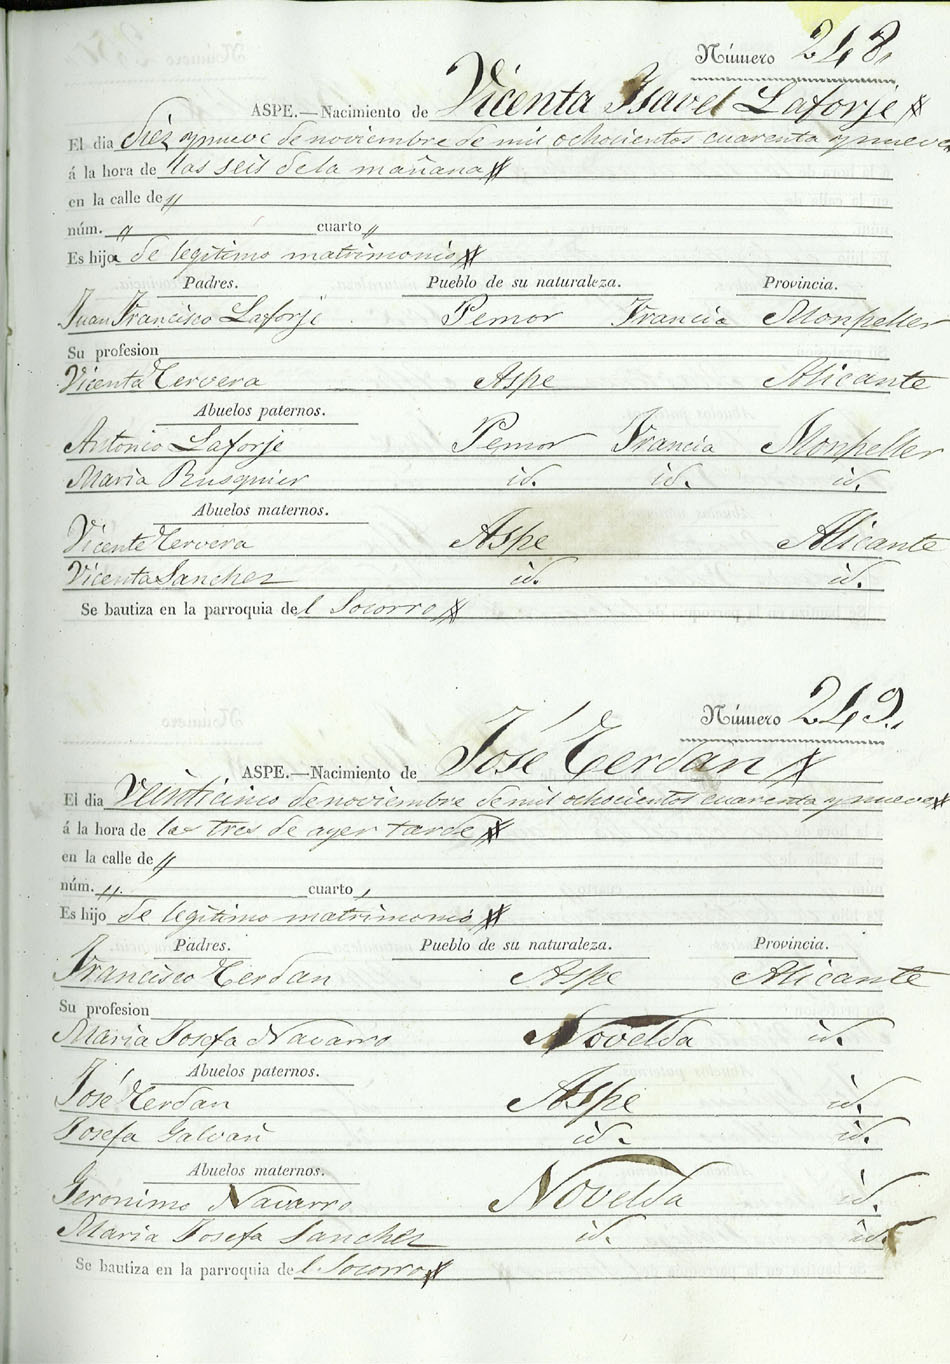 Número 248.
ASPE.—Nacimiento de Vicenta Isavel Laforje
El dia diez y nueve de noviembre de mil ochocientos cuarenta y nueve
á la hora de las seis de la mañana
en la calle de "
núm. " cuarto "
Es hija de legitimo matrimonio
Padres. Pueblo de su naturaleza. Provincia.
Juan Francisco Laforje Pemor Francia Monpeller
Su profesion
Vicenta Cervera Aspe Alicante
Abuelos paternos.
Antonio Laforje Pemor Francia Monpeller
Maria Rusquier id. id. id.
Abuelos maternos.
Vicente Cervera Aspe Alicante
Vicenta Sanchez id. id.
Se bautiza en la parroquia del Socorro
Número 249.
ASPE.—Nacimiento de José Cerdan
El dia veinticinco de noviembre de mil ochocientos cuarenta y nueve
á la hora de las tres de ayer tarde
en la calle de "
núm. " cuarto "
Es hijo de legitimo matrimonio
Padres. Pueblo de su naturaleza. Provincia.
Francisco Cerdan Aspe Alicante
Su profesion
Maria Josefa Navarro Novelda id.
Abuelos paternos.
José Cerdan Aspe id.
Josefa Galvañ id. id.
Abuelos maternos.
Geronimo Navarro Novelda id.
Maria Josefa Sanchez id. id.
Se bautiza en la parroquia del Socorro